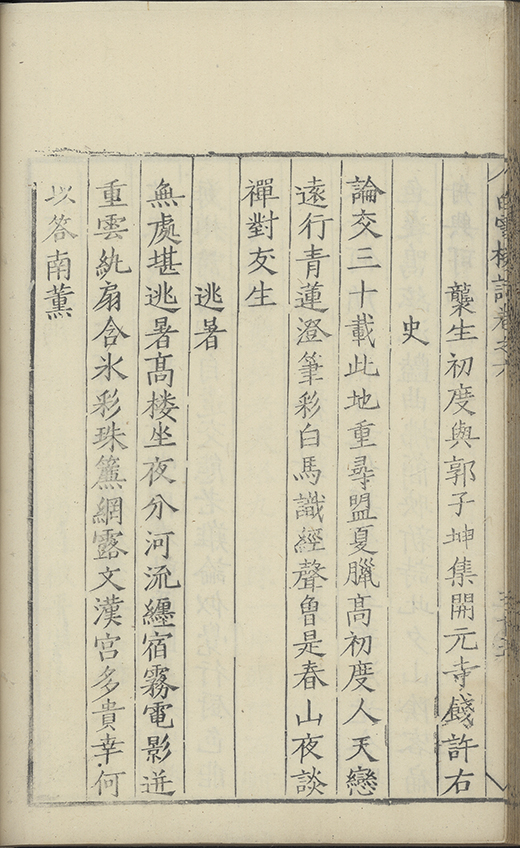 白雲樓詩卷之六
龑生初度與郭子坤集開元寺餞許右
史
論交三十載此地重尋盟夏臘髙初度人天戀
遠行青蓮澄筆彩白馬識經聲魯是春山夜談
禪對友生
逃暑
無處堪逃暑髙楼坐夜分河流纏宿霧電影迸
重雲紈扇含氷彩珠簾網露文漢宫多貴幸何
以答南薫